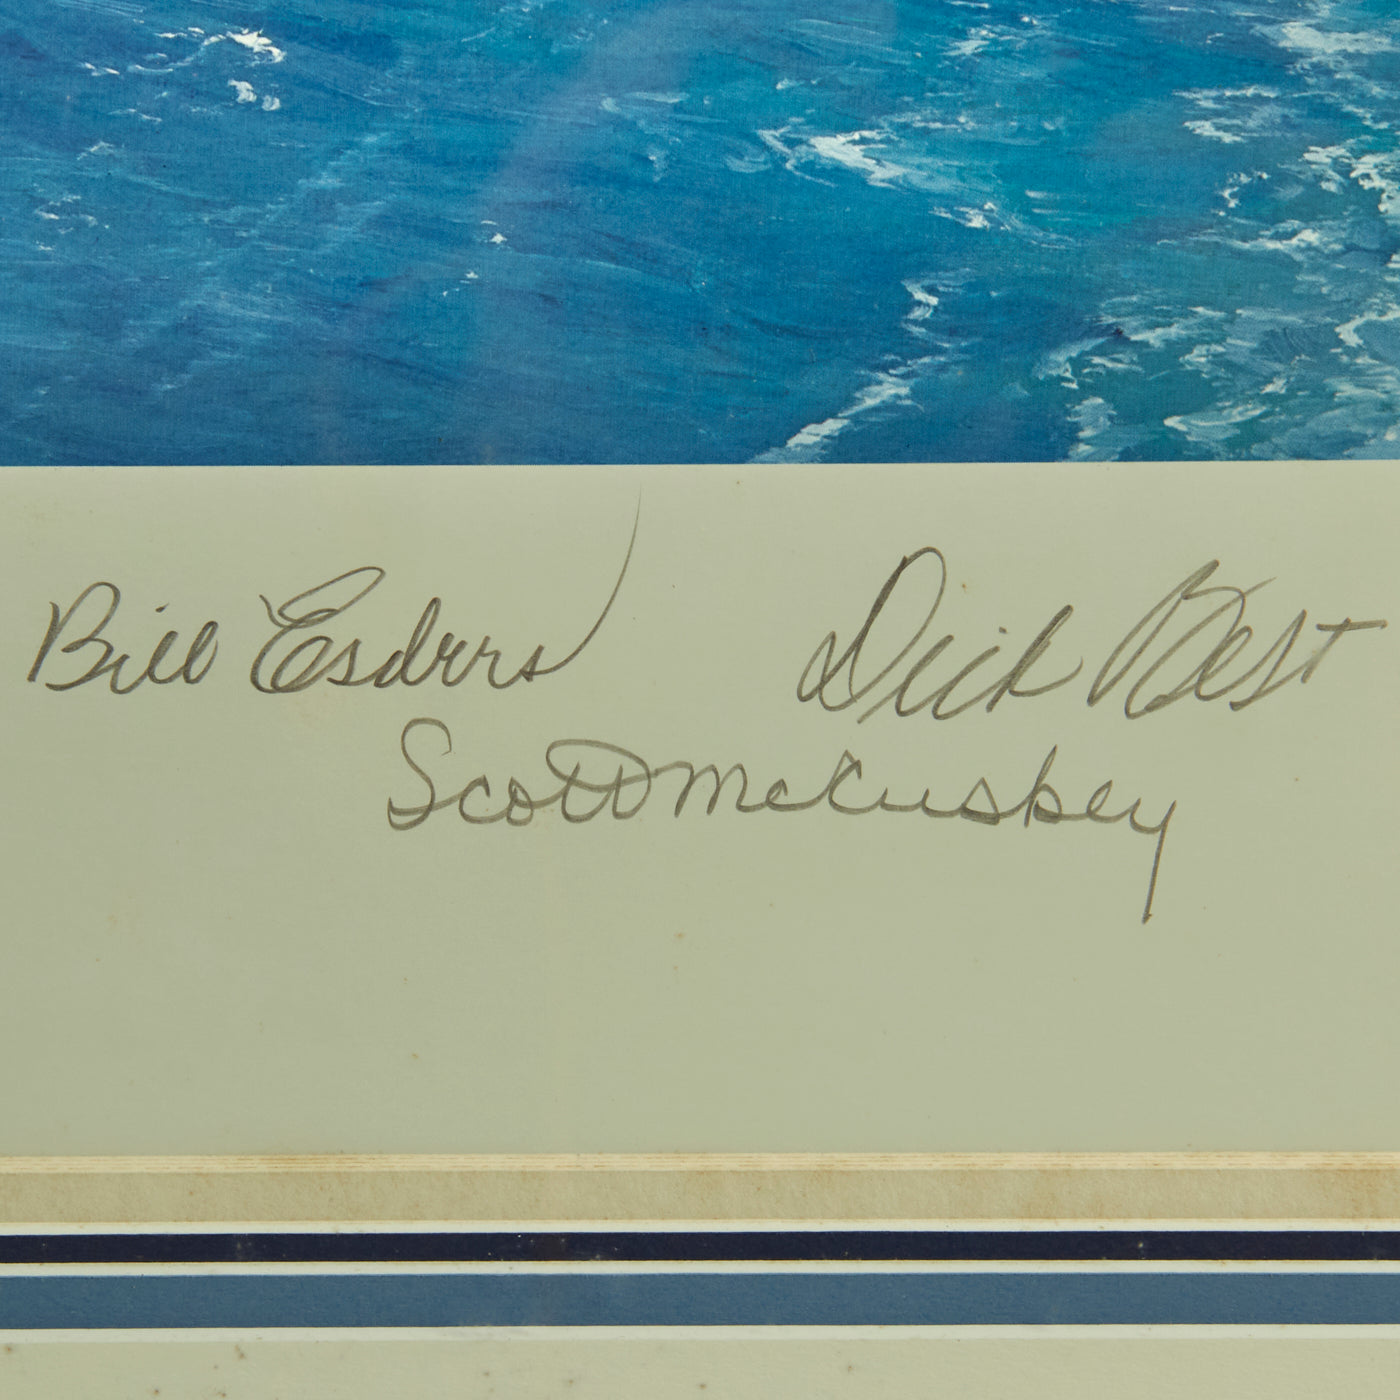 Bill Esders Dick Best
Scott McCuskey